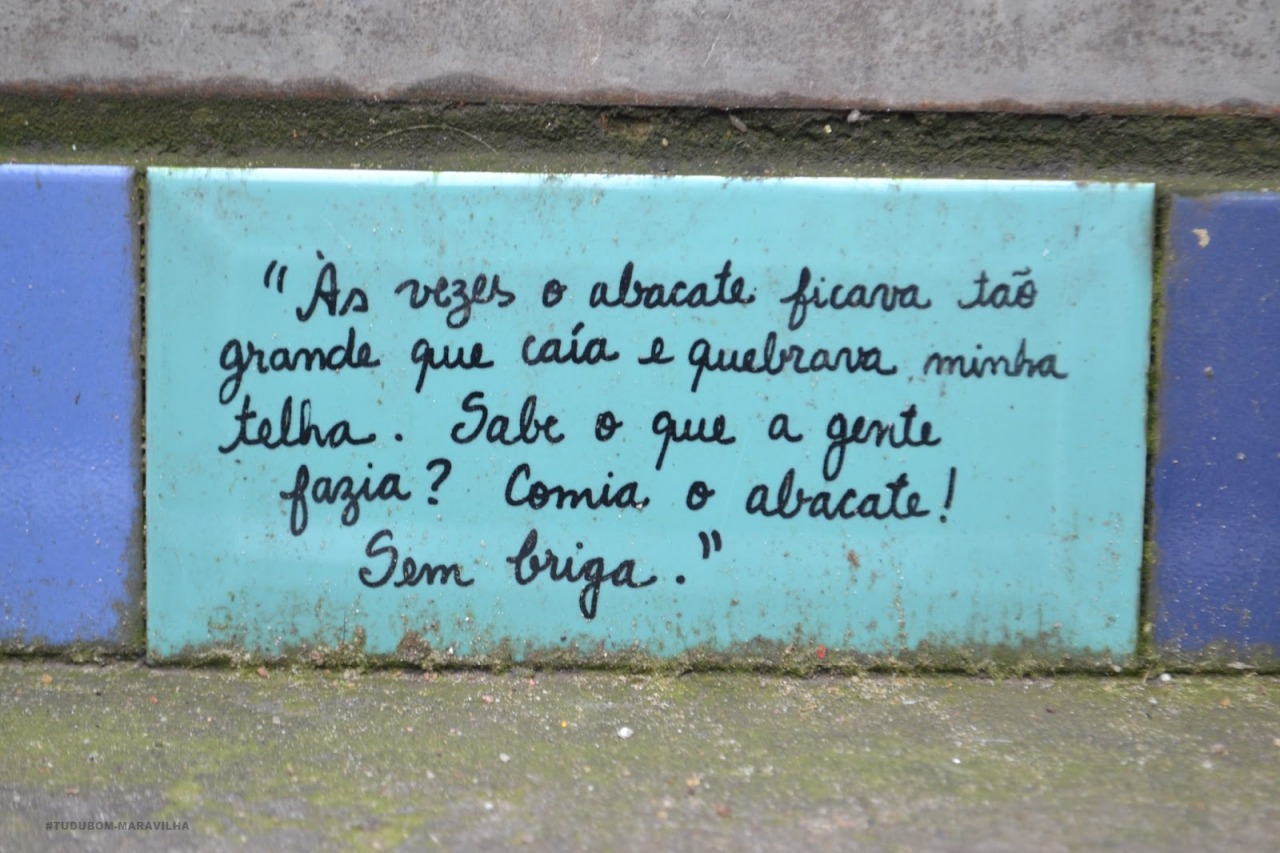 "Às vezes o abacate ficava tão
grande que caía e quebrava minha
telha. Sabe o que a gente
fazia? Comia o abacate!
Sem briga."
#TUDUBOM-MARAVILHA